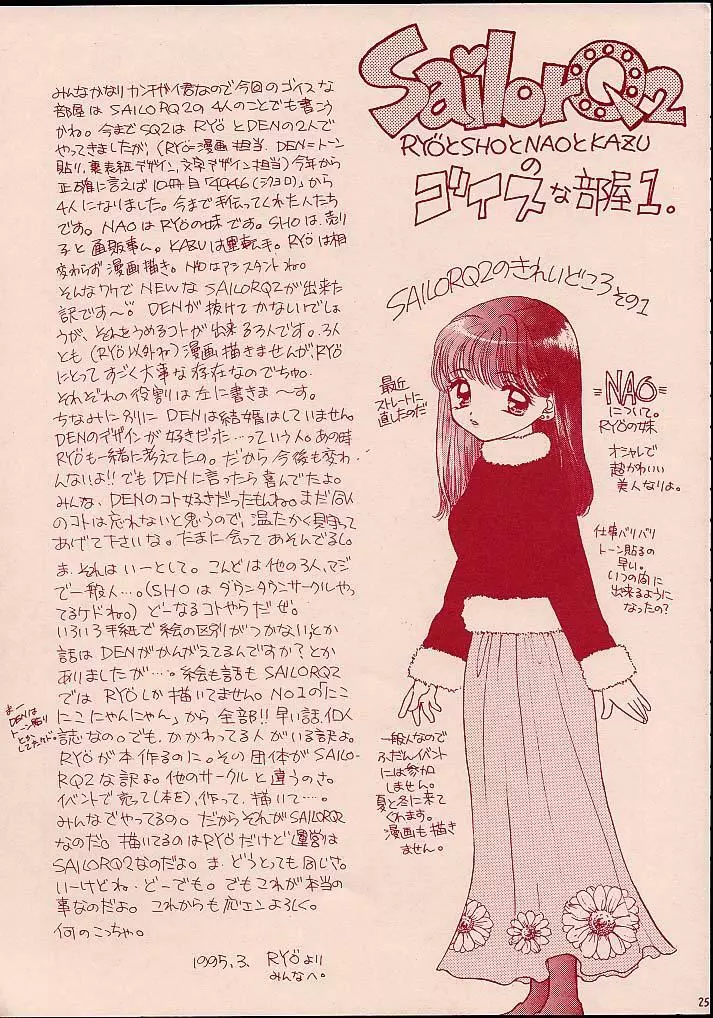 SailorQ2
RYÖとSHOとNAOとKAZU
の
ゴイスな部屋1.
みんなかなりカンチガイ君なので今回のゴイスな
部屋はSAILORQ2の4人のことでも書こう
かね。今までSQ2はRYÖとDENの2人で
やってきましたが、(RYÖ=漫画担当.DEN=トーン
貼り,裏表紙デザイン,文字デザイン担当)今年から
正確に言えば10冊目「4946(シクヨロ)」から
4人になりました。今まで手伝ってくれた人たち
です。NAOはRYÖの妹です。SHOは、売り
子と通販事ム。KAZUは運転手。RYÖは相
変わらず漫画描き。NAOはアシスタントね。
そんなワケでNEWなSAILORQ2が出来た
訳です〜。DENが抜けてかないでしょ
うが、それをうめるコトが出来る3人です。3人
とも(RYÖ以外ね)漫画描きませんがRYÖ
にとってすごく大事な存在なのでちゅ。
それぞれの役割は左に書きま〜す。
ちなみに別にDENは結婚はしていません。
DENのデザインが好きだった…っていう人。あの時
RYÖも一緒に考えてたの。だから今後も変わ
んないよ!!でもDENに言ったら喜んでたよ。
みんな、DENのコト好きだったもんね。まだDEN
のコトは忘れないと思うので、温たかく見守って
あげて下さいな。たまに会ってあそんでるし。
ま.それはいーとして。こんどは他の3人、マジ
で一般人…。(SHOはダウンタウンサークルやっ
てるケドね。)どーなるコトやらだぜ。
いろいろ手紙で絵の区別がつかない、とか
話はDENがかんがえてるんですか?とか
ありましたが…。絵も話もSAILORQ2
ではRYÖしか描いてません。NO1の「にこ
にこにゃんにゃん」から全部!!早い話、個人
誌なの。でも、かかわってる人がいる訳よ。
RYÖが本作るのに。その団体がSAILO-
RQ2な訳よ。他のサークルと違うのさ。
イベントで売って(本を),作って,描いて…。
みんなでやってるの。だからそれがSAILORQ2
なのだ。描いてるのはRYÖだけど運営は
SAILORQ2なのだよ。ま.どうとっても同じさ。
いーけどね.どーでも。でもこれが本当の
事なのだよ。これからも応エンよろしく。
何のこっちゃ。
1995.3. RYÖより
みんなへ。
まー
DENは
トーン貼り
とか
してたケド。
SAILORQ2のきれいどころその1
最近
ストレートに
直したのだ
=NAO=
について。
RYÖの妹
オシャレで
超かわいい
美人なりよ。
仕事バリバリ
トーン貼るの
早い。
いつの間に
出来るように
なったの?
一般人なので
ふだんイベント
には参加
しません。
夏と冬に来て
くれます。
漫画も描き
ません。
25